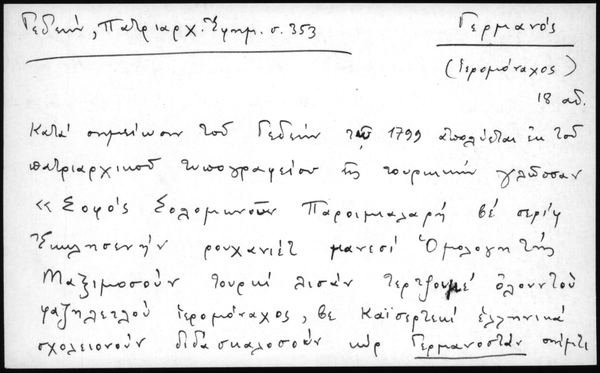 Γεδεών, Πατριαρχ. Ἐφημ. σ. 353
Γερμανός
(ἱερομόναχος)
18 αἰ.
Κατά σημείωσιν τοῦ Γεδεών τῷ 1799 ἀπολύεται ἐκ τοῦ
πατριαρχικοῦ τυπογραφείου εἰς τουρκικήν γλῶσσαν
«Σοφός Σολομωνοῦν Παροιμιαλαρή βέ σερίφ
Ἐκκλησενήν ρουχανιέτ μανεσί Ὁμολογητής
Μαξιμοσούν τουρκί λισάν τερτζουμέ ὀλουντοῦ
φαζηλετλοῦ ἱερομόναχος, βε Καϊσερτεκί ἑλληνικά
σχολειονούν διδασκαλοσούν κύρ Γερμανοστάν